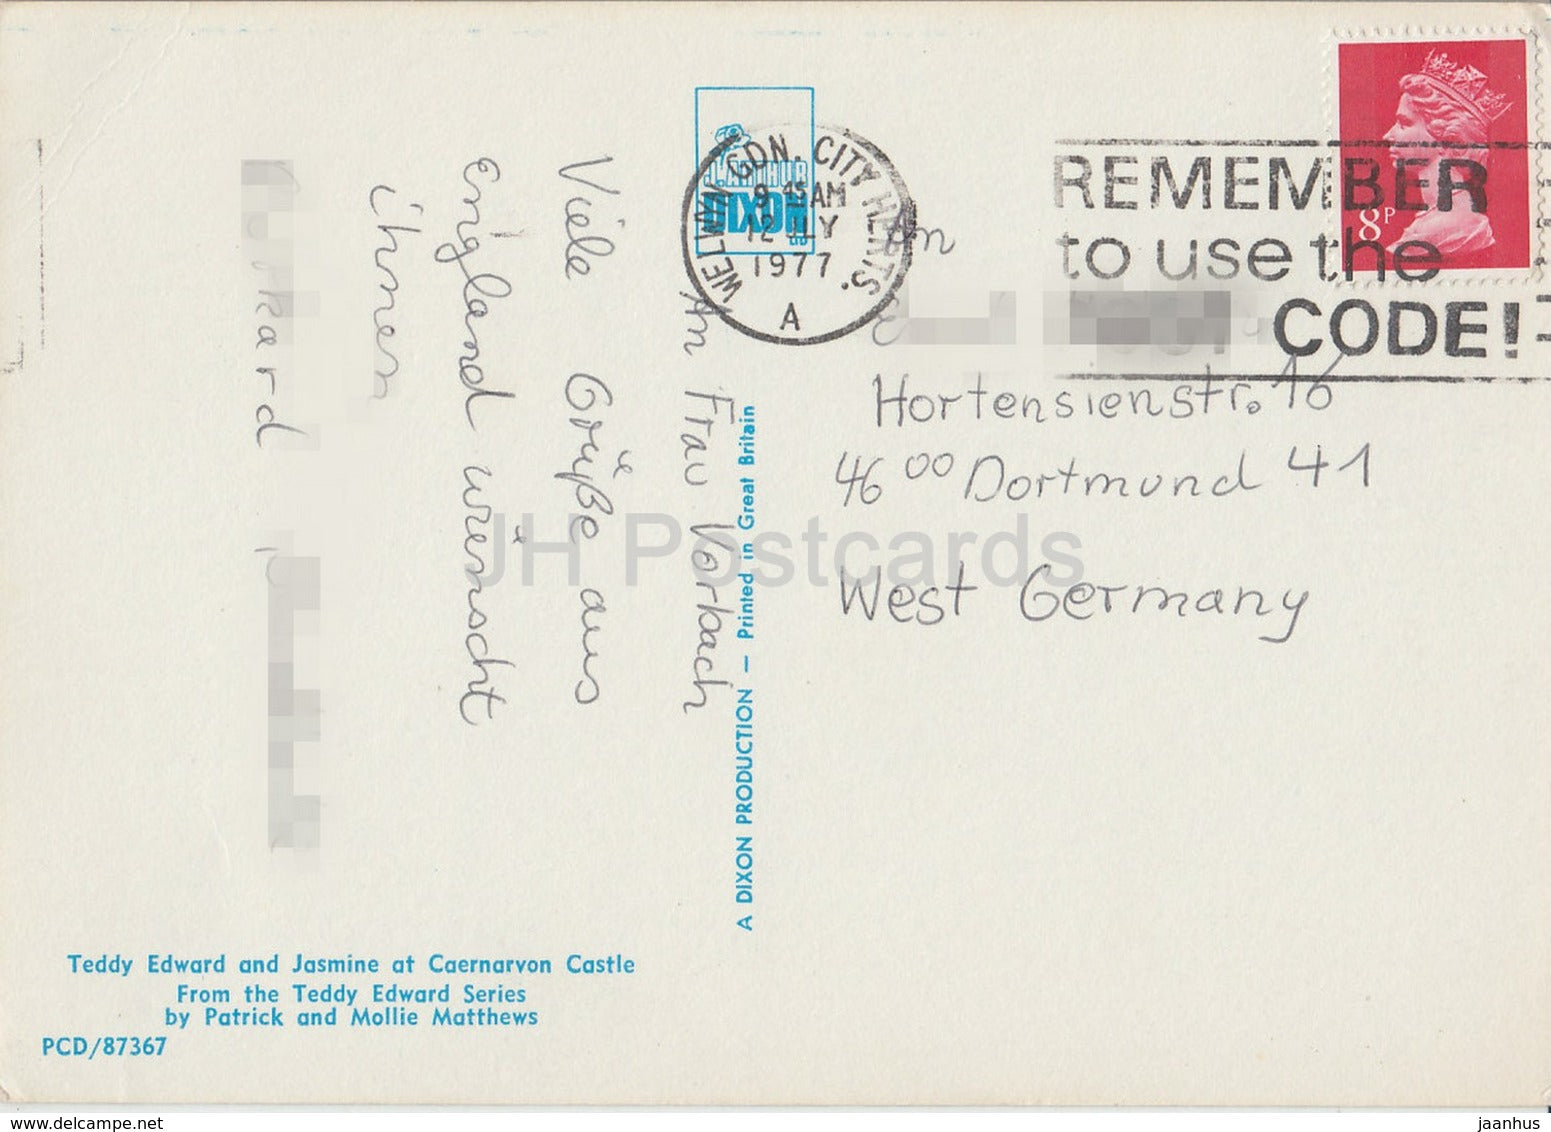 An Frau Vorbach
Viele Grüße aus
England wünscht
ihnen
An
Hortensienstr. 16
46 00 Dortmund 41
West Germany
H. ARTHUR
DIXON
WELWYN GDN. CITY HERTS.
9 45 AM
12 JLY
1977
A
REMEMBER
to use the
CODE!
8P
A DIXON PRODUCTION — Printed in Great Britain
Teddy Edward and Jasmine at Caernarvon Castle
From the Teddy Edward Series
by Patrick and Mollie Matthews
PCD/87367
JH Postcards
www.delcampe.net
jaanhus